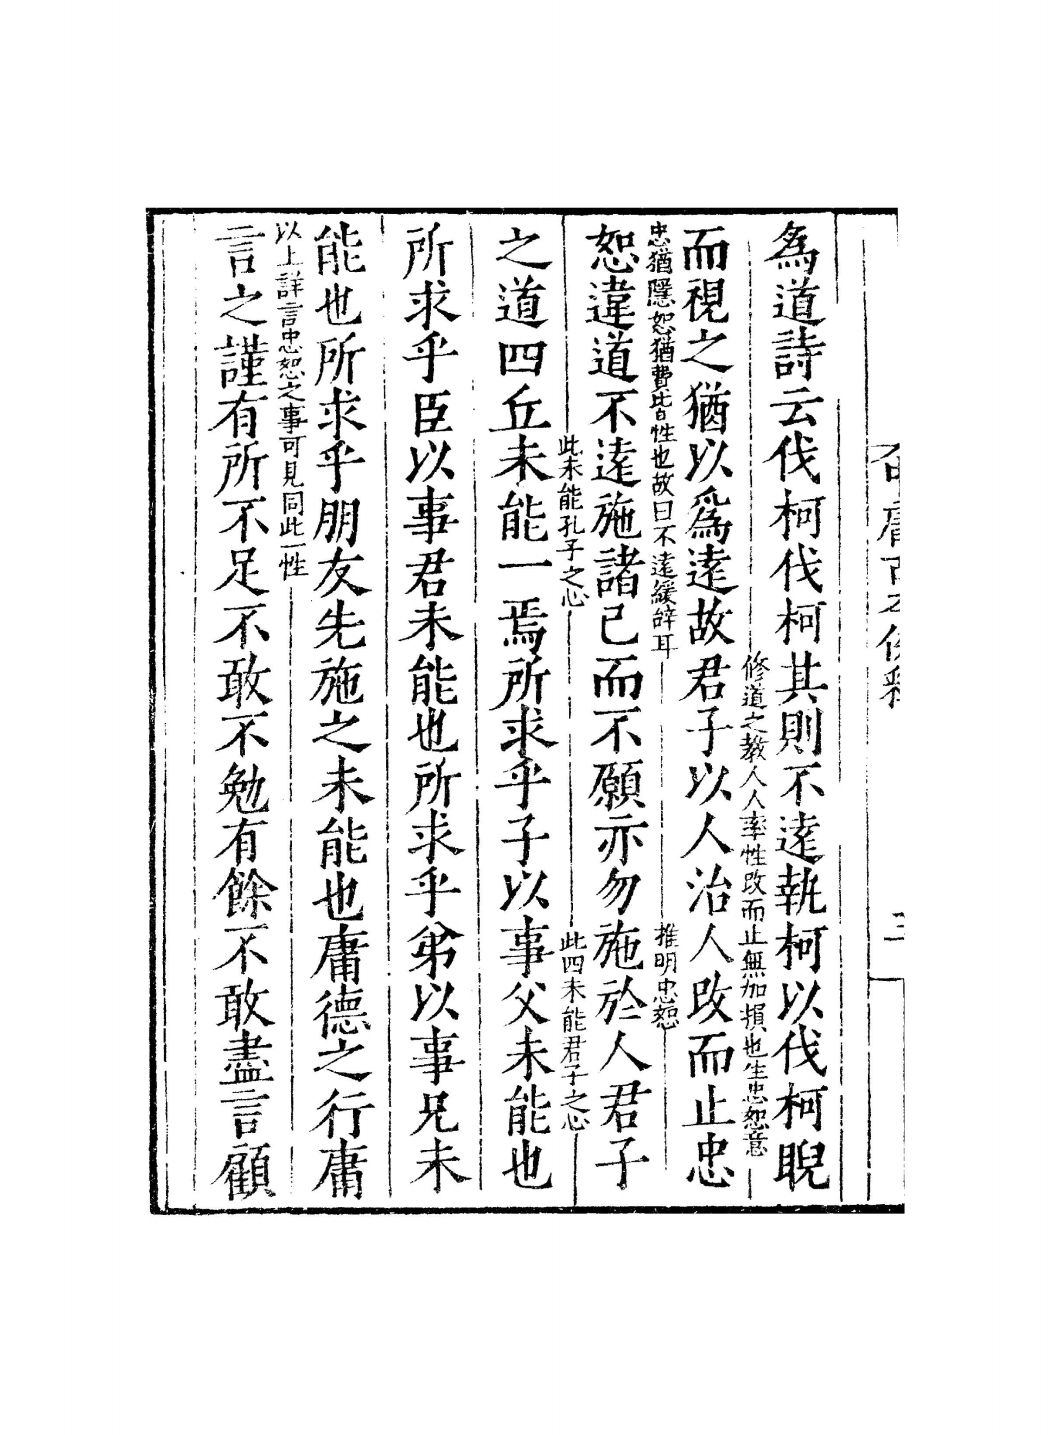 為道詩云伐柯伐柯其則不遠執柯以伐柯睨
修道之教人人率性改而止無加損也生忠恕意
而視之猶以爲遠故君子以人治人改而止忠
忠猶隱恕猶費皆性也故曰不遠緩辭耳
推明忠恕
恕違道不遠施諸己而不願亦勿施於人君子
此未能孔子之心
此四未能君子之心
之道四丘未能一焉所求乎子以事父未能也
所求乎臣以事君未能也所求乎弟以事兄未
能也所求乎朋友先施之未能也庸德之行庸
以上詳言忠恕之事可見同此一性
言之謹有所不足不敢不勉有餘不敢盡言顧